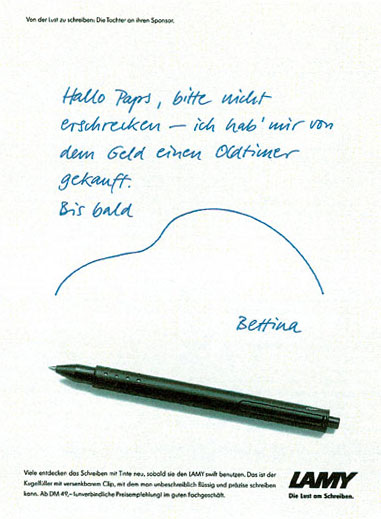 Von der Lust zu schreiben: Die Tochter an ihren Sponsor.
Hallo Paps, bitte nicht
erschrecken – ich hab' mir von
dem Geld einen Oldtimer
gekauft.
Bis bald
Bettina
Viele entdecken das Schreiben mit Tinte neu, sobald sie den LAMY swift benutzen. Das ist der
Kugelfüller mit versenkbarem Clip, mit dem man unbeschreiblich flüssig und präzise schreiben
kann. Ab DM 49,– (unverbindliche Preisempfehlung) im guten Fachgeschäft.
LAMY
Die Lust am Schreiben.